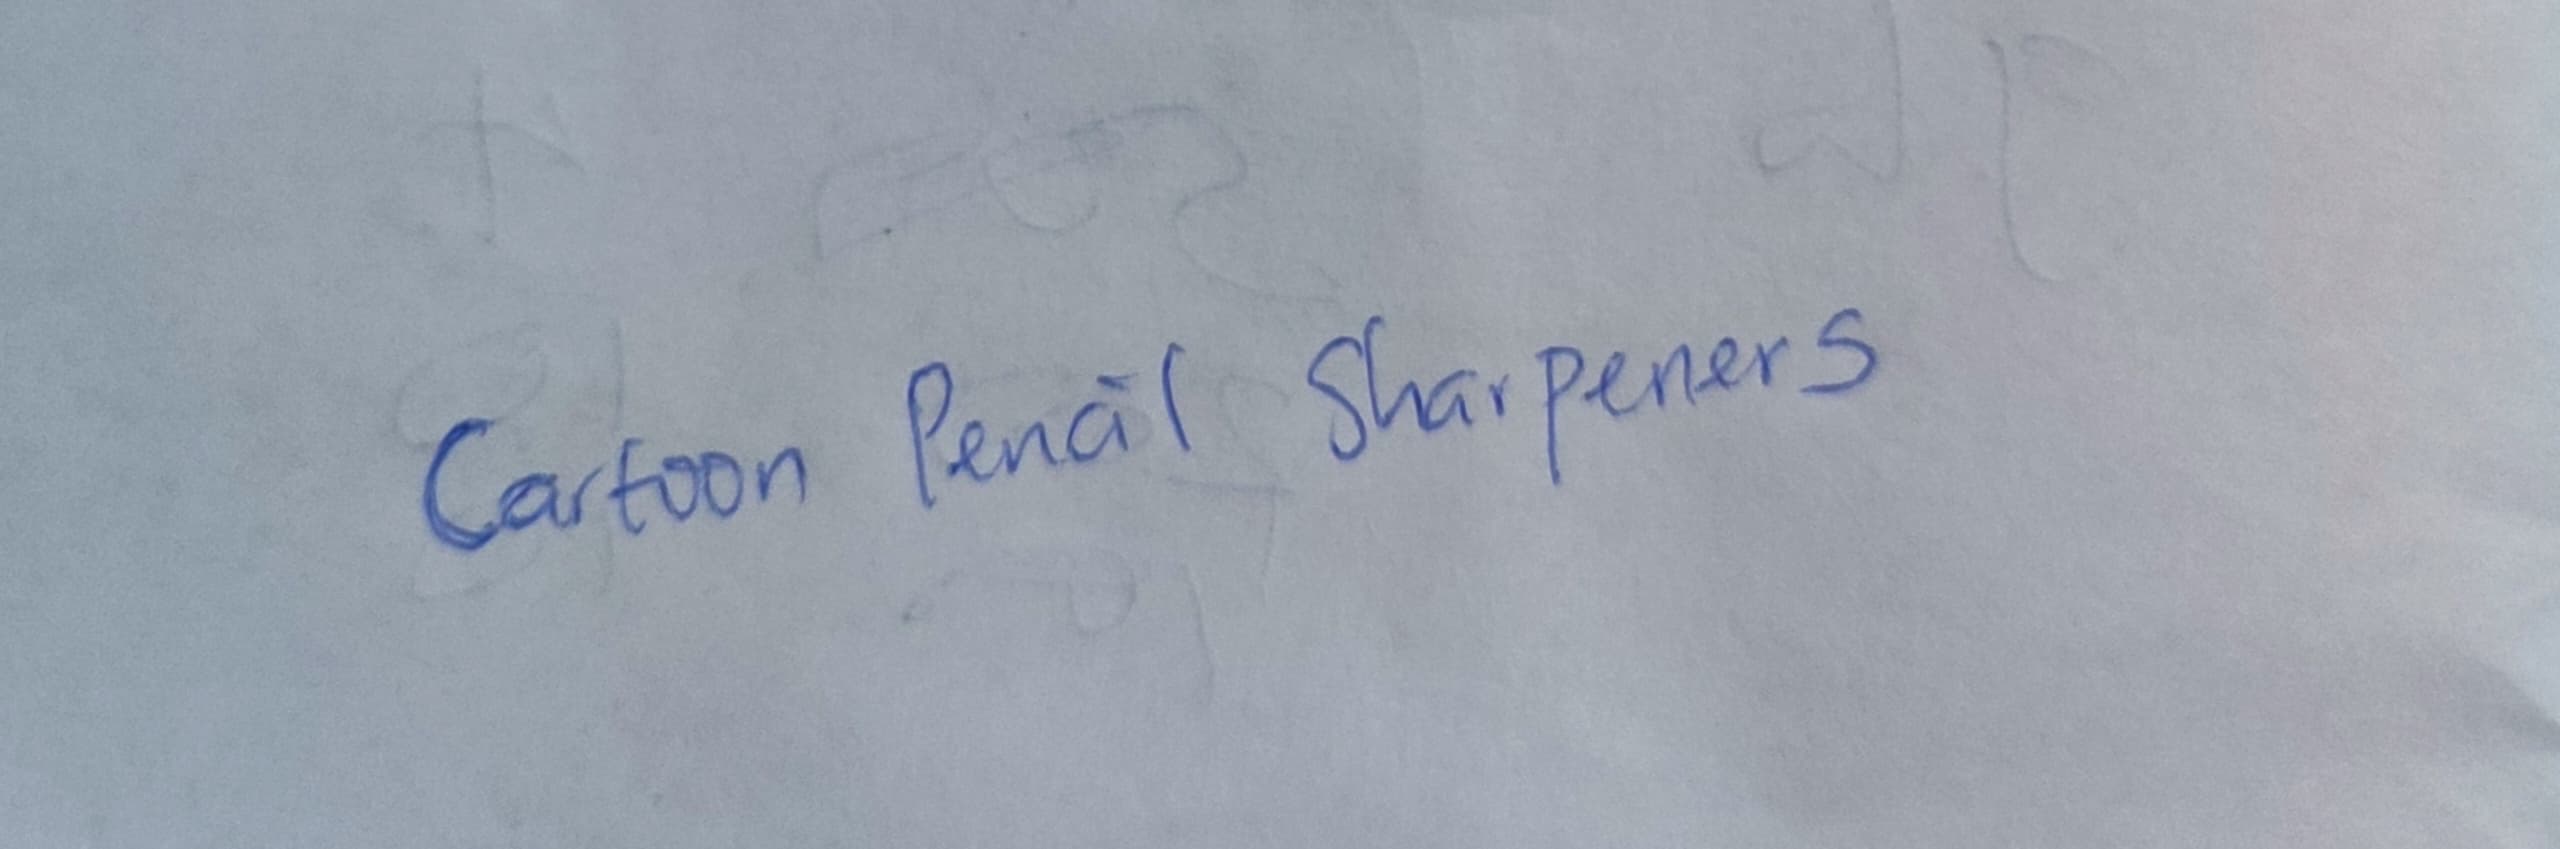 Cartoon Pencil Sharpeners